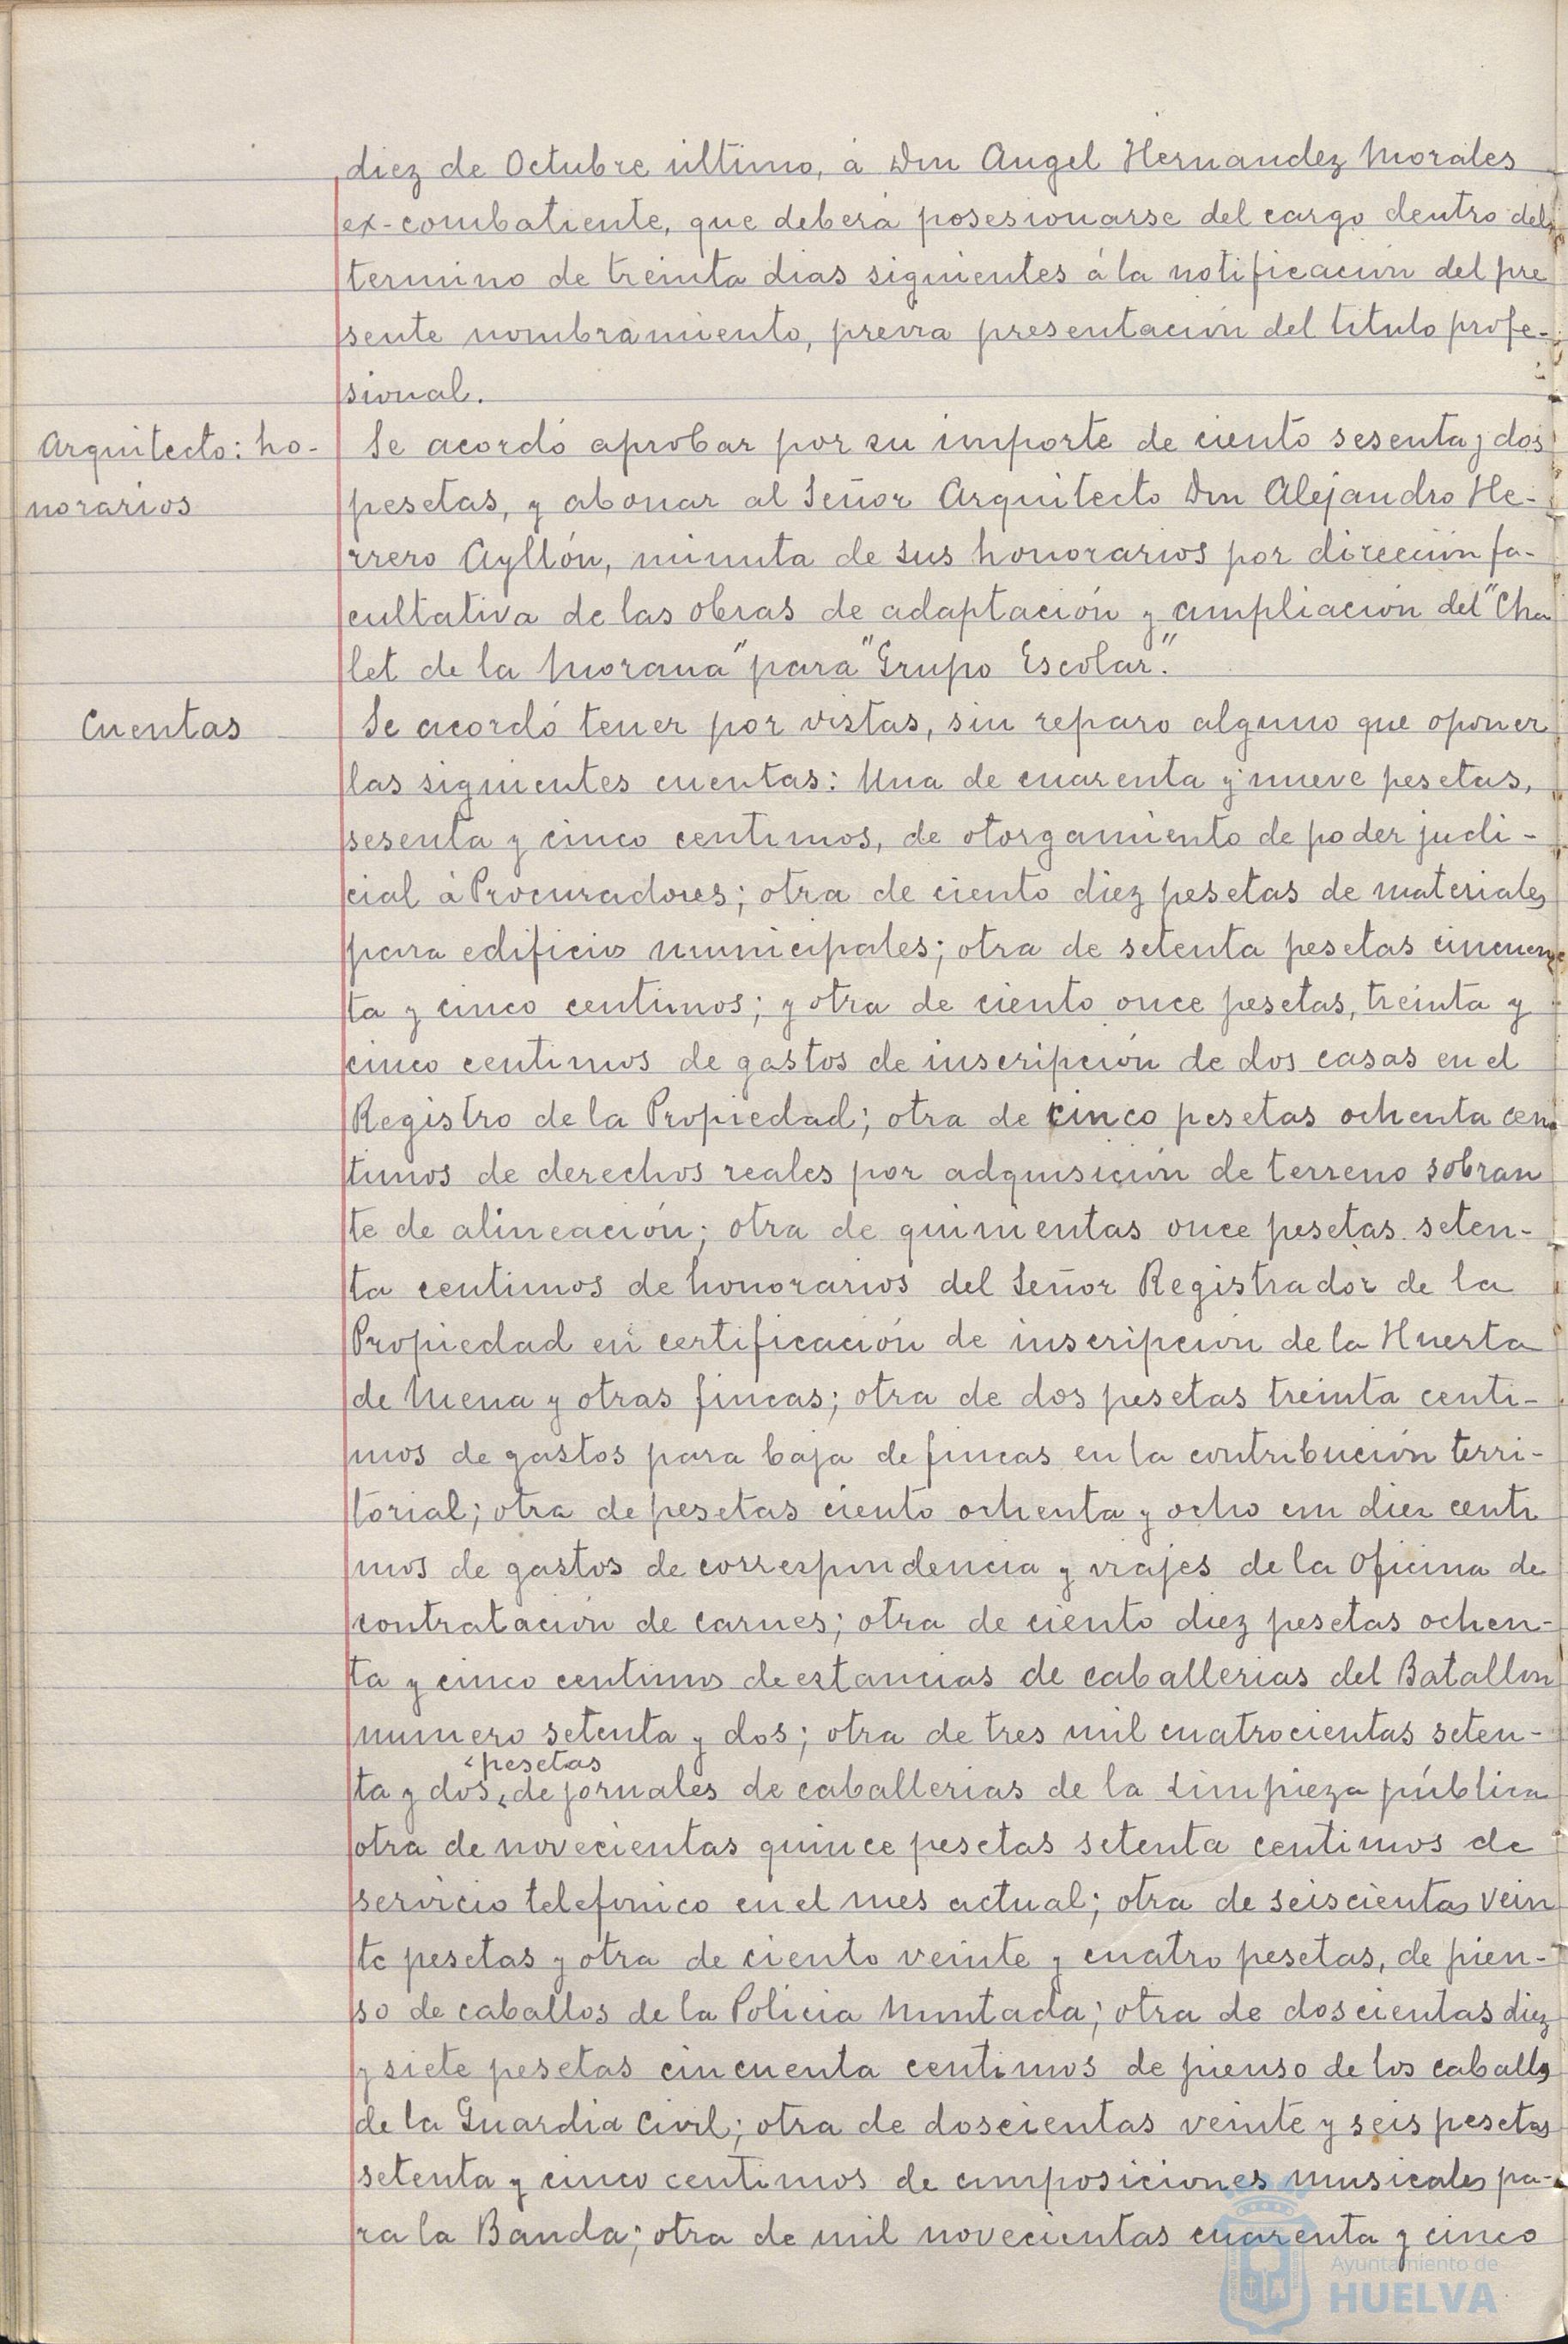 diez de Octubre último, á Don Angel Hernandez Morales
ex-combatiente, que deberá posesionarse del cargo dentro del
termino de treinta dias siguientes á la notificación del pre
sente nombramiento, previa presentación del titulo profe-
sional.
Arquitecto: ho-
norarios
Se acordó aprobar por su importe de ciento sesenta y dos
pesetas, y abonar al Señor Arquitecto Don Alejandro He-
rrero Ayllón, minuta de sus honorarios por dirección fa-
cultativa de las obras de adaptación y ampliación del "Cha
let de la Morana" para "Grupo Escolar".
Cuentas
Se acordó tener por vistas, sin reparo alguno que oponer
las siguientes cuentas: Una de cuarenta y nueve pesetas,
sesenta y cinco centimos, de otorgamiento de poder judi-
cial á Procuradores; otra de ciento diez pesetas de materiales
para edificios municipales; otra de setenta pesetas cincuen
ta y cinco centimos; y otra de ciento once pesetas, treinta y
cinco centimos de gastos de inscripción de dos casas en el
Registro de la Propiedad; otra de cinco pesetas ochenta cen
timos de derechos reales por adquisición de terreno sobran
te de alineación; otra de quinientas once pesetas seten-
ta centimos de honorarios del Señor Registrador de la
Propiedad en certificación de inscripción de la Huerta
de Mena y otras fincas; otra de dos pesetas treinta centi-
mos de gastos para baja de fincas en la contribución terri-
torial; otra de pesetas ciento ochenta y ocho con diez centi
mos de gastos de correspondencia y viajes de la Oficina de
contratación de carnes; otra de ciento diez pesetas ochen-
ta y cinco centimos de estancias de caballerias del Batallon
numero setenta y dos; otra de tres mil cuatrocientas seten-
pesetas
ta y dos, de jornales de caballerias de la Limpieza pública
otra de novecientas quince pesetas setenta centimos de
servicio telefonico en el mes actual; otra de seiscientas vein
te pesetas y otra de ciento veinte y cuatro pesetas, de pien-
so de caballos de la Policia Montada; otra de doscientas diez
y siete pesetas cincuenta centimos de pienso de los caballos
de la Guardia Civil; otra de doscientas veinte y seis pesetas
setenta y cinco centimos de composiciones musicales pa-
ra la Banda; otra de mil novecientas cuarenta y cinco
Ayuntamiento de
HUELVA